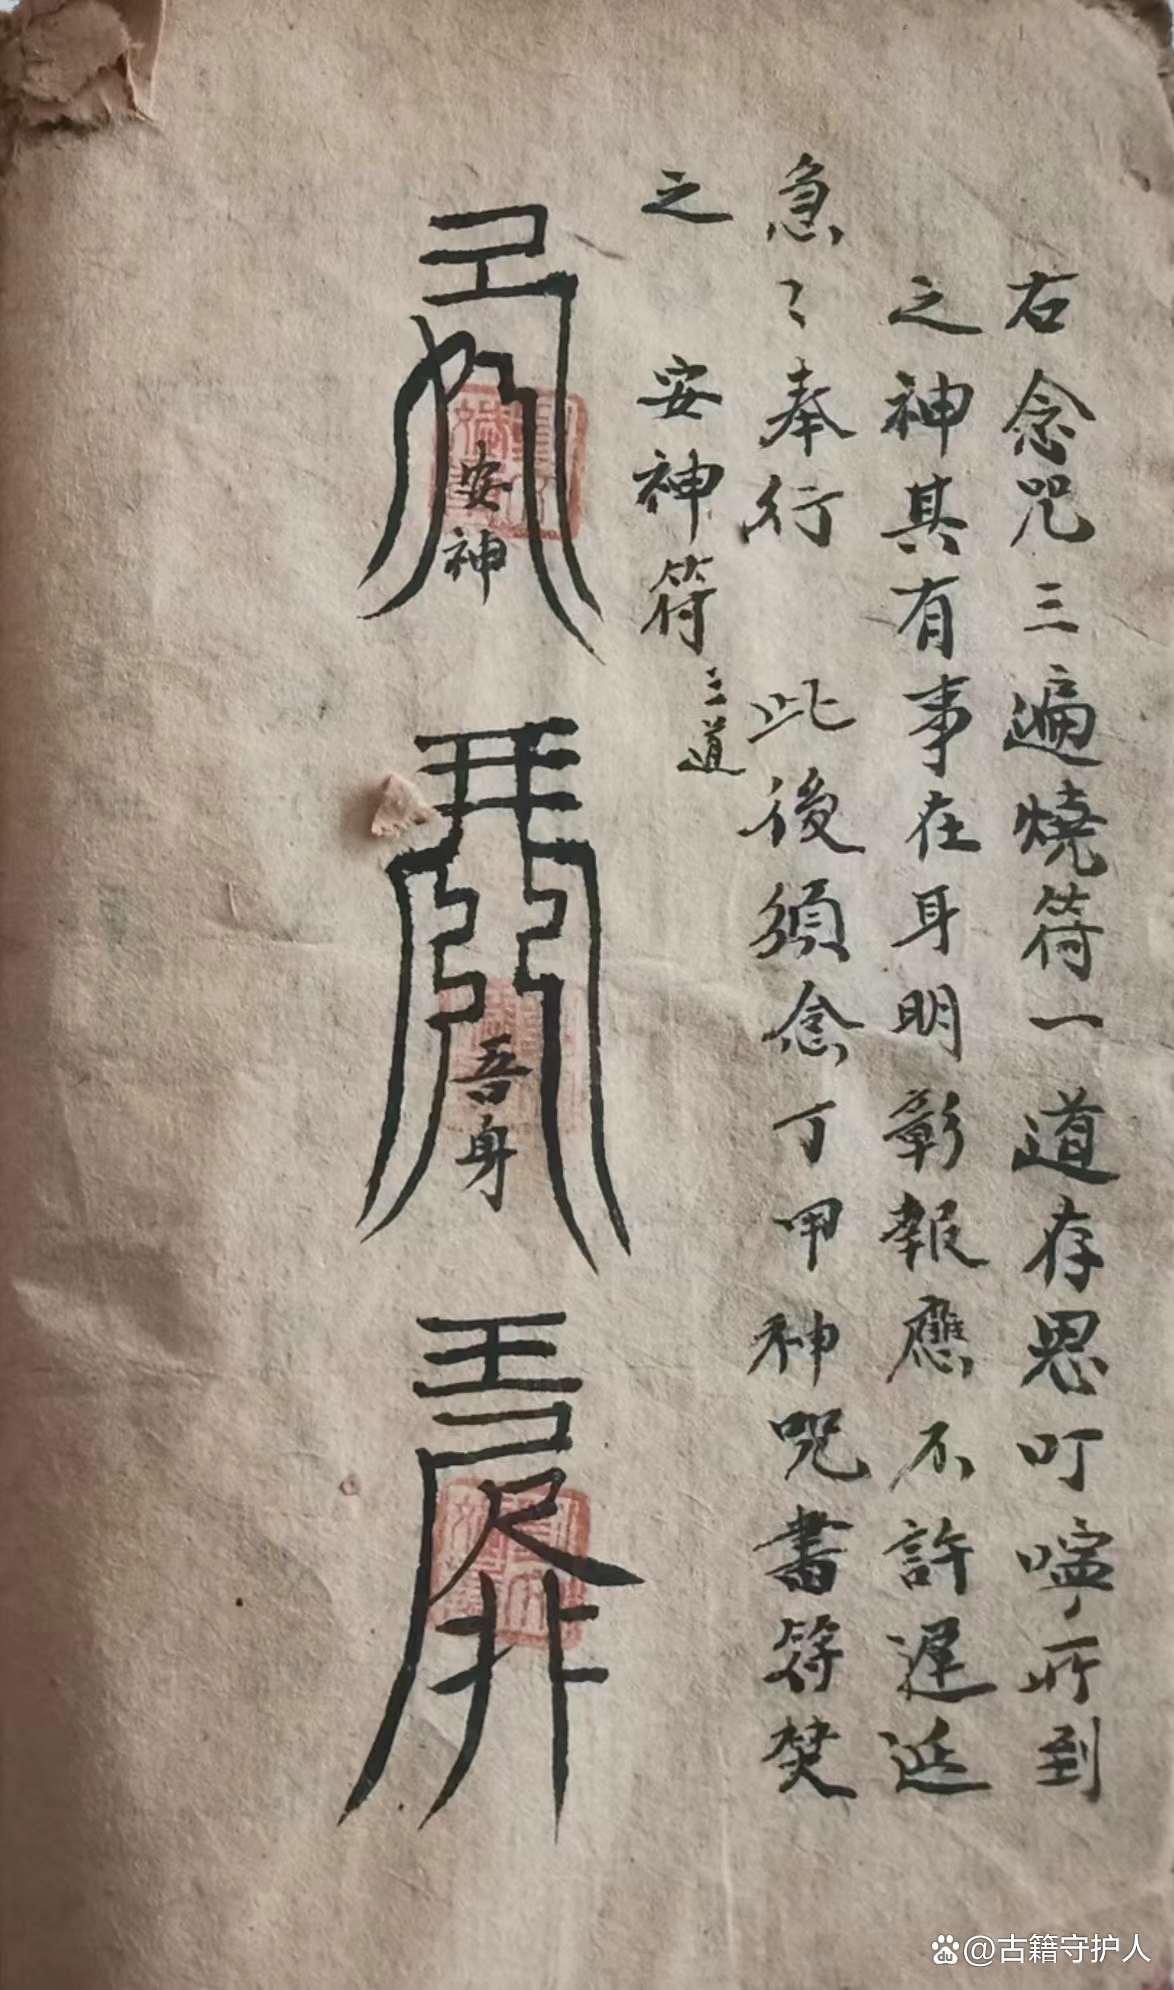 右念咒三遍燒符一道存思叮嚀所到
之神其有事在身明彰報應不許遲延
急〻奉行　此後須念丁甲神咒書符焚
之　安神符三道
安神
吾身
@古籍守护人